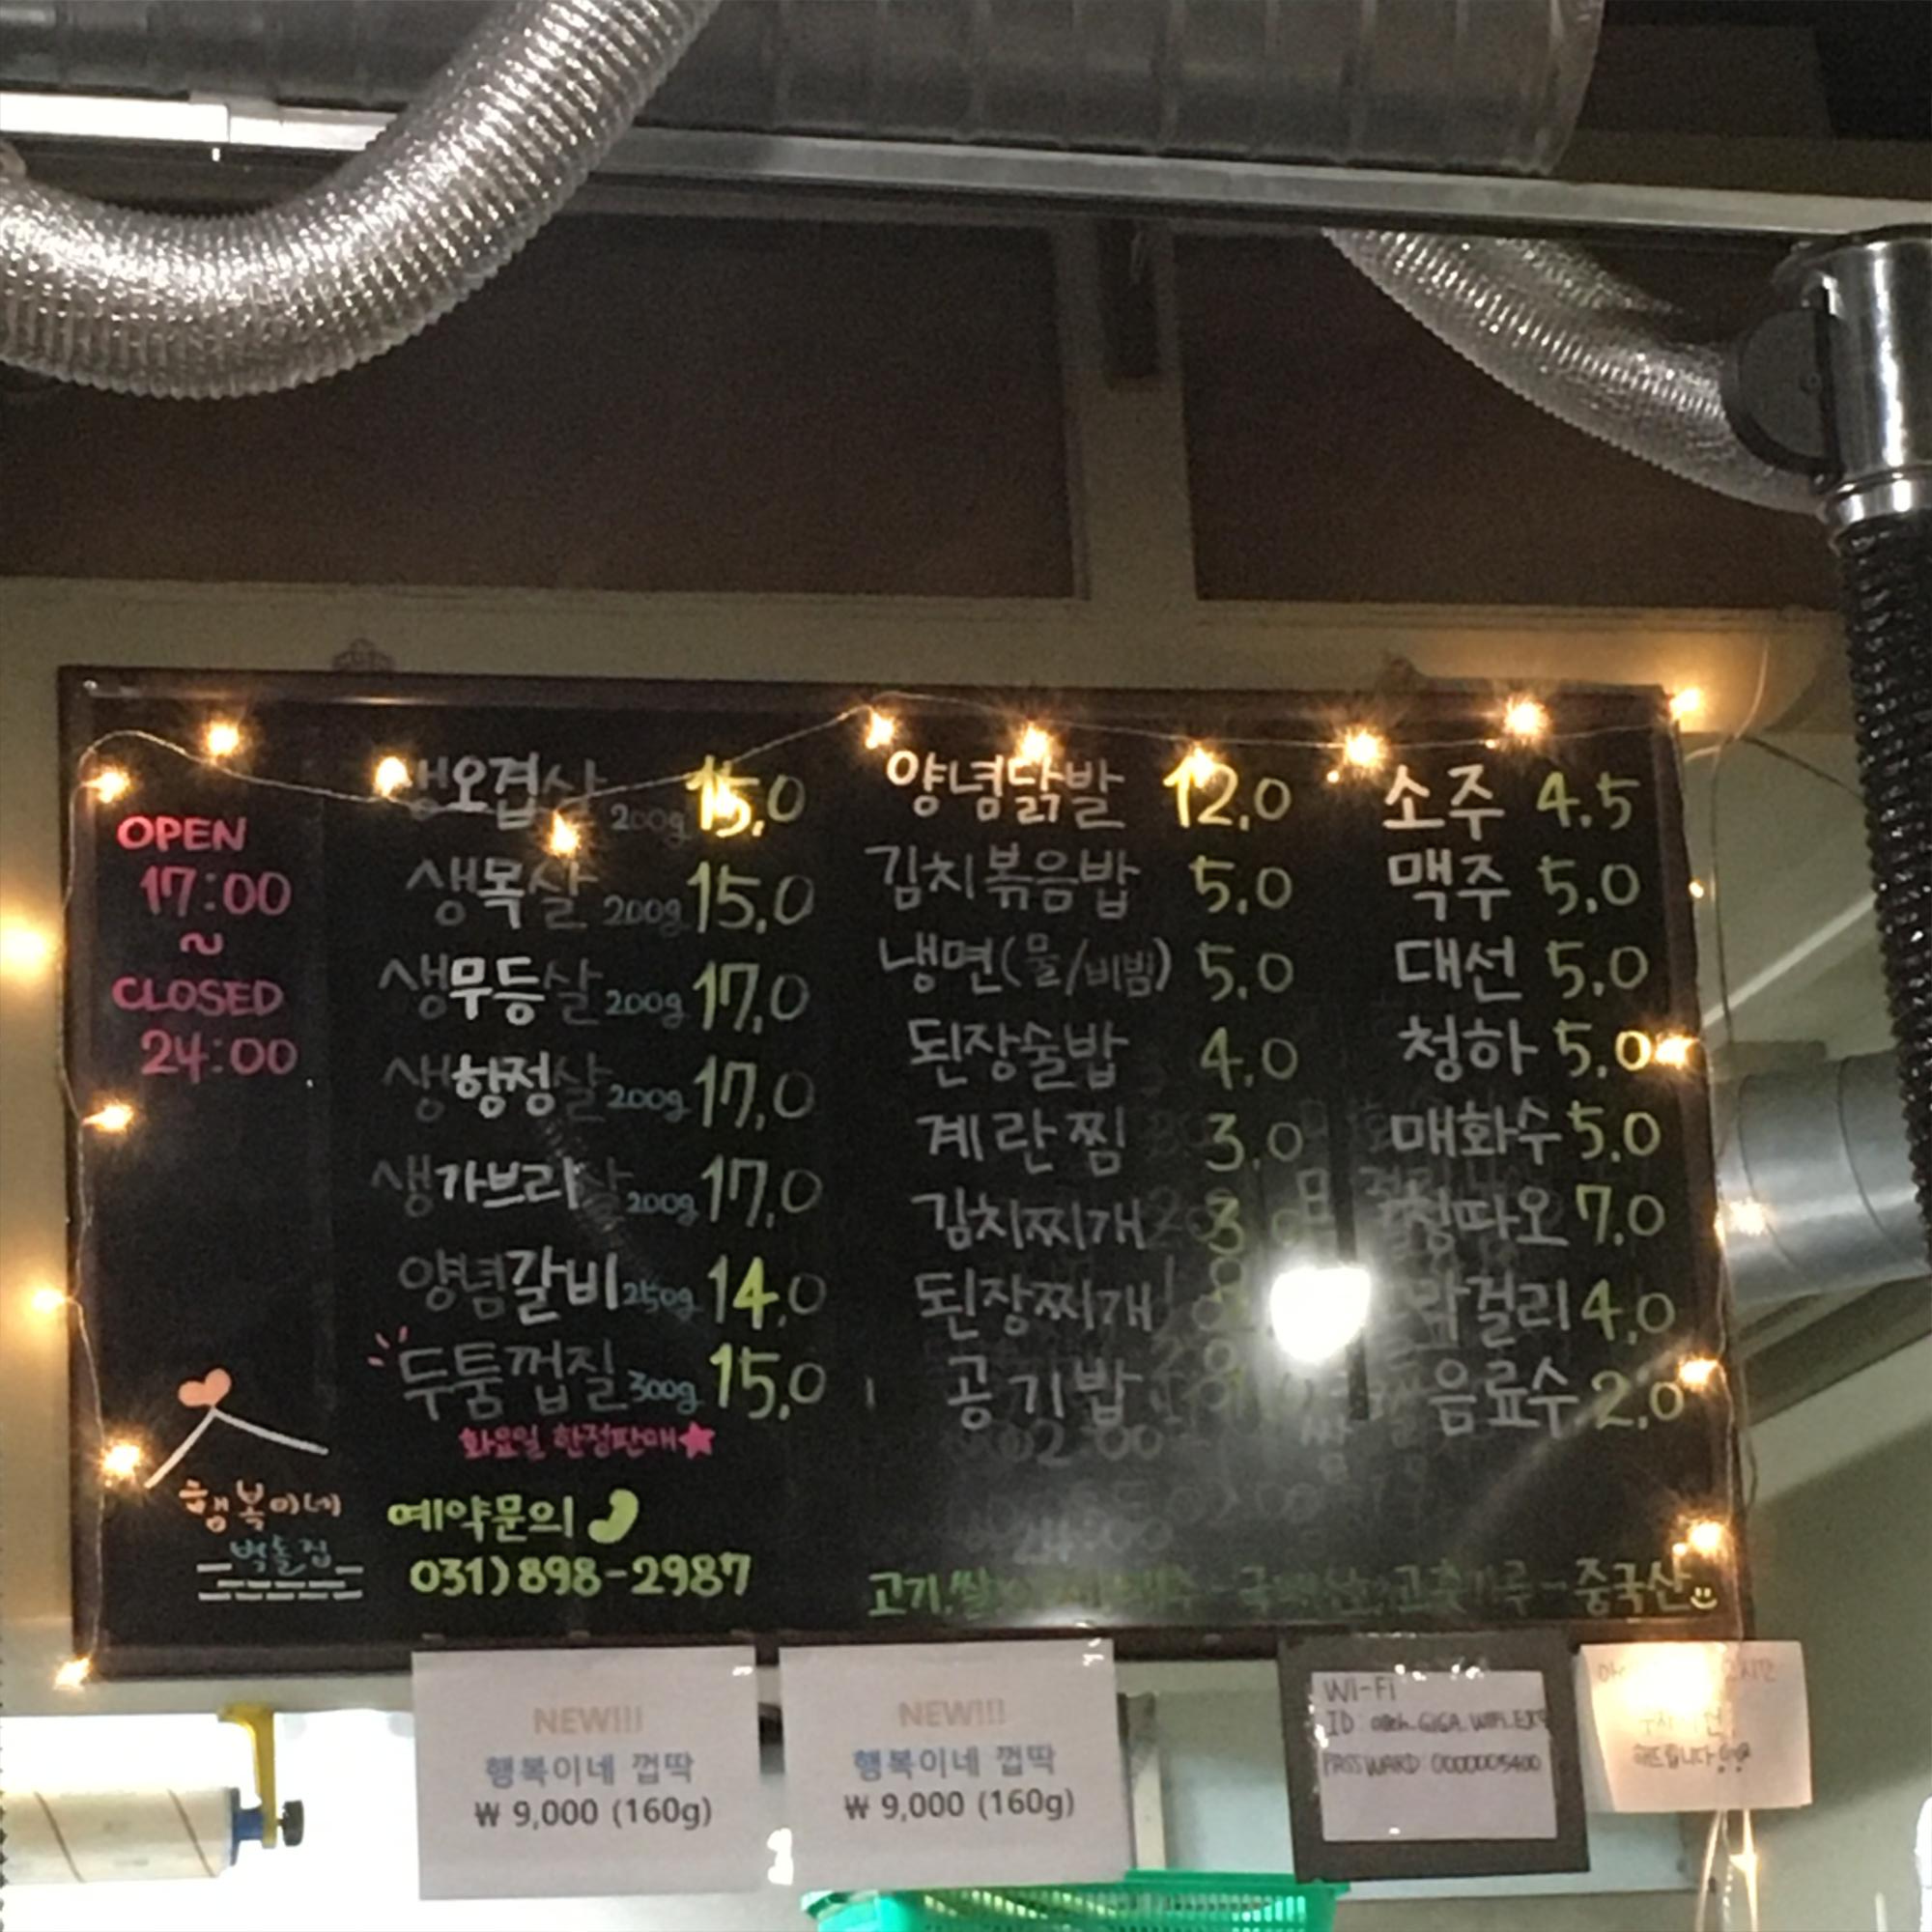 OPEN
17:00
~
CLOSED
24:00
생오겹살 200g 15,0
생목살 200g 15,0
생무등살 200g 17,0
생항정살 200g 17,0
생가브리살 200g 17,0
양념갈비 250g 14,0
두툼껍질 300g 15,0
화요일 한정판매★
양념닭발 12,0
김치볶음밥 5,0
냉면(물/비빔) 5,0
된장술밥 4,0
계란찜 3,0
김치찌개 3,0
된장찌개
공기밥
소주 4.5
맥주 5,0
대선 5,0
청하 5,0
매화수 5,0
칭따오 7,0
막걸리 4,0
음료수 2,0
행복이네
벽돌집
예약문의
031)898-2987
고기,쌀 고춧가루-중국산
NEW!!!
행복이네 껍딱
₩ 9,000 (160g)
NEW!!!
행복이네 껍딱
₩ 9,000 (160g)
WI-Fi
ID:
PASSWARD: 0000005400
해드립니다